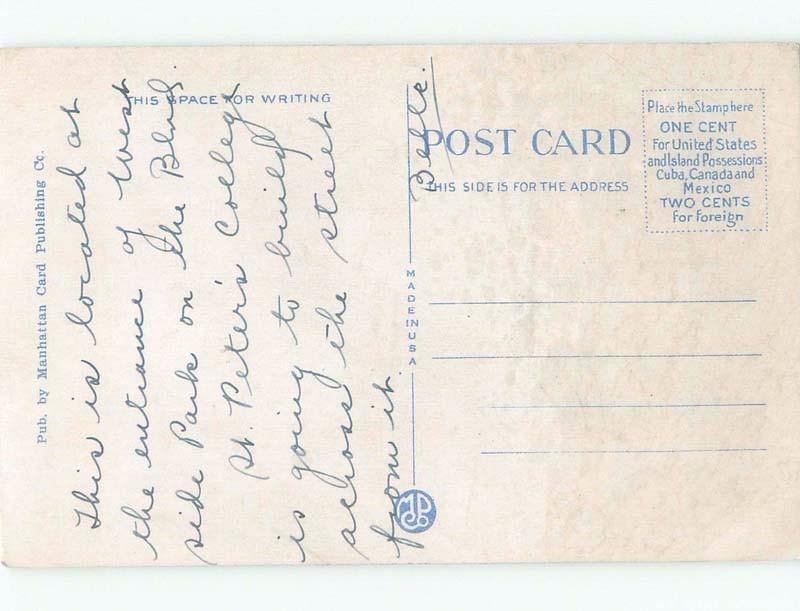 THIS SPACE FOR WRITING
Pub. by Manhattan Card Publishing Co.
This is located at
the entrance of West
side Park on the Blvd.
St. Peter's College
is going to build
across the street
from it
Belle.
POST CARD
THIS SIDE IS FOR THE ADDRESS
Place the Stamp here
ONE CENT
For United States
and Island Possessions
Cuba, Canada and
Mexico
TWO CENTS
For Foreign
MADE IN USA